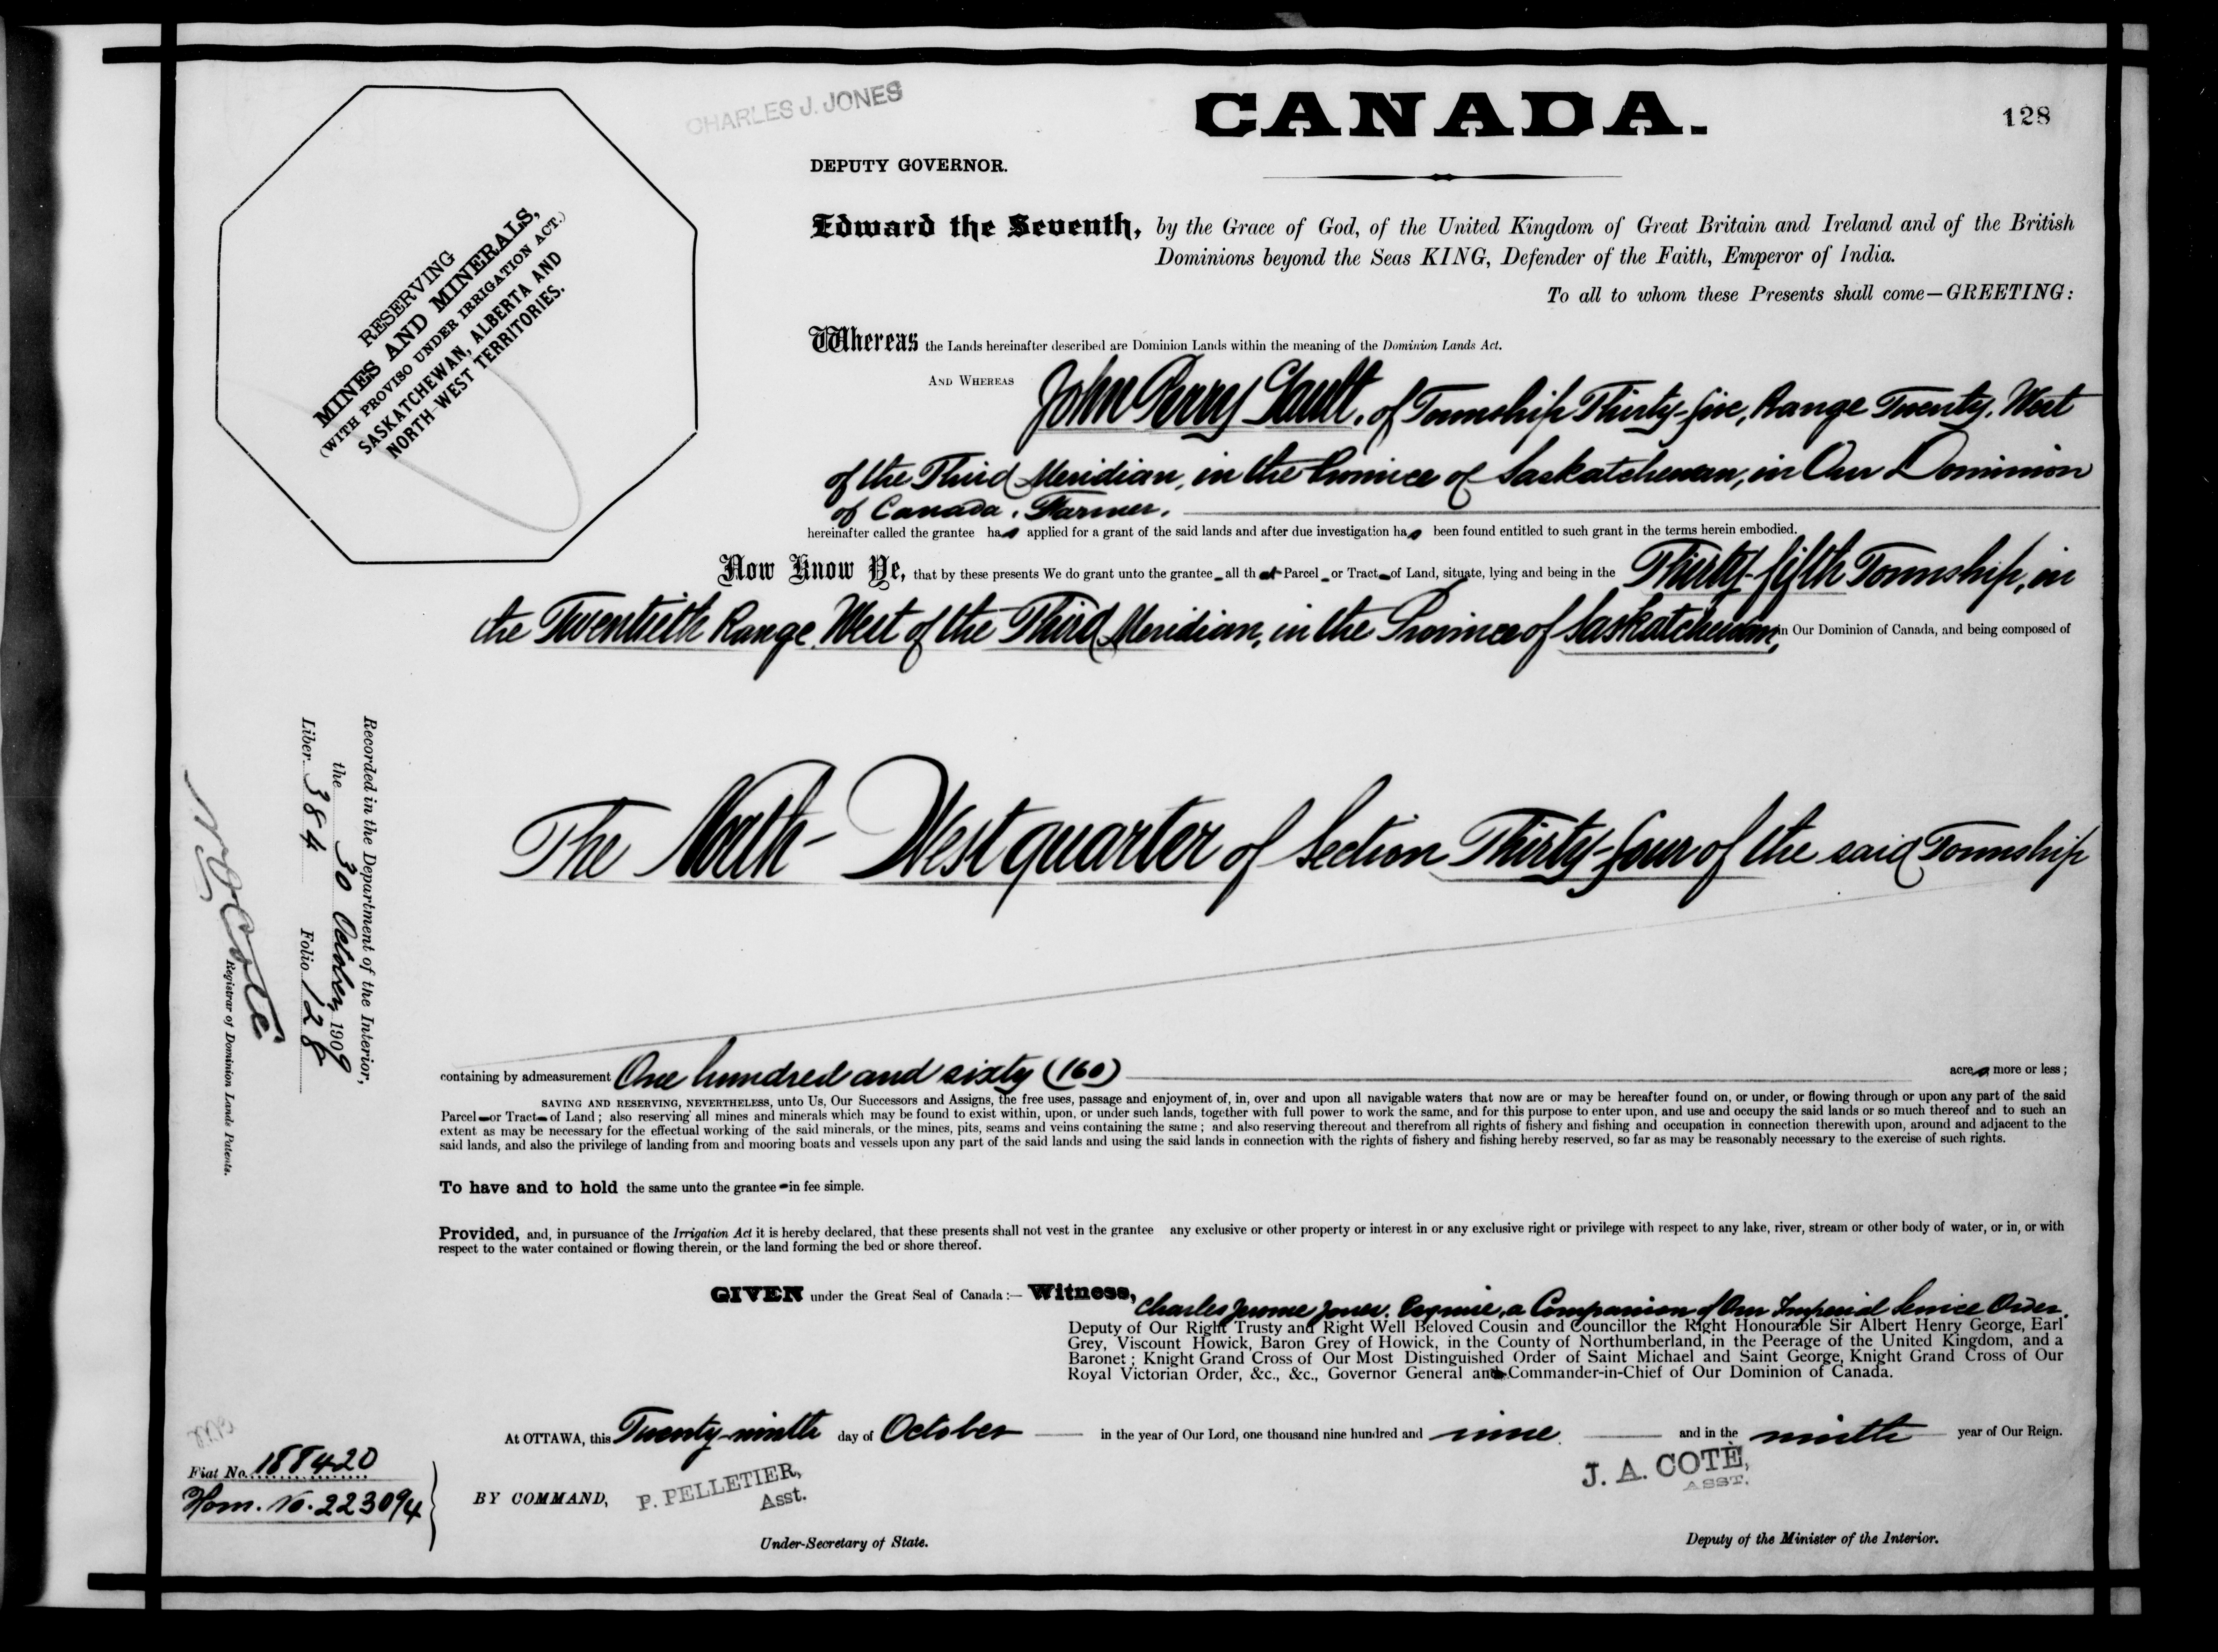 CHARLES J. JONES
CANADA.
128
DEPUTY GOVERNOR.
RESERVING
MINES AND MINERALS,
(WITH PROVISO UNDER IRRIGATION ACT.)
SASKATCHEWAN, ALBERTA AND
NORTH-WEST TERRITORIES.
Edward the Seventh, by the Grace of God, of the United Kingdom of Great Britain and Ireland and of the British
Dominions beyond the Seas KING, Defender of the Faith, Emperor of India.
To all to whom these Presents shall come—GREETING:
Whereas the Lands hereinafter described are Dominion Lands within the meaning of the Dominion Lands Act.
AND WHEREAS John Perry Gault, of Township Thirty-five, Range Twenty, West
of the Third Meridian, in the Province of Saskatchewan, in Our Dominion
of Canada, Farmer.
hereinafter called the grantee has applied for a grant of the said lands and after due investigation has been found entitled to such grant in the terms herein embodied.
Now Know Ye, that by these presents We do grant unto the grantee all that Parcel or Tract of Land, situate, lying and being in the Thirty-fifth Township, in
the Twentieth Range, West of the Third Meridian, in the Province of Saskatchewan, in Our Dominion of Canada, and being composed of
The North-West quarter of Section Thirty-four of the said Township
containing by admeasurement One hundred and sixty (160) acres more or less;
SAVING AND RESERVING, NEVERTHELESS, unto Us, Our Successors and Assigns, the free uses, passage and enjoyment of, in, over and upon all navigable waters that now are or may be hereafter found on, or under, or flowing through or upon any part of the said
Parcel or Tract of Land; also reserving all mines and minerals which may be found to exist within, upon, or under such lands, together with full power to work the same, and for this purpose to enter upon, and use and occupy the said lands or so much thereof and to such an
extent as may be necessary for the effectual working of the said minerals, or the mines, pits, seams and veins containing the same; and also reserving thereout and therefrom all rights of fishery and fishing and occupation in connection therewith upon, around and adjacent to the
said lands, and also the privilege of landing from and mooring boats and vessels upon any part of the said lands and using the said lands in connection with the rights of fishery and fishing hereby reserved, so far as may be reasonably necessary to the exercise of such rights.
To have and to hold the same unto the grantee in fee simple.
Provided, and, in pursuance of the Irrigation Act it is hereby declared, that these presents shall not vest in the grantee any exclusive or other property or interest in or any exclusive right or privilege with respect to any lake, river, stream or other body of water, or in, or with
respect to the water contained or flowing therein, or the land forming the bed or shore thereof.
GIVEN under the Great Seal of Canada:— Witness, Charles Jerome Jones, Esquire, a Companion of Our Imperial Service Order,
Deputy of Our Right Trusty and Right Well Beloved Cousin and Councillor the Right Honourable Sir Albert Henry George, Earl
Grey, Viscount Howick, Baron Grey of Howick, in the County of Northumberland, in the Peerage of the United Kingdom, and a
Baronet; Knight Grand Cross of Our Most Distinguished Order of Saint Michael and Saint George, Knight Grand Cross of Our
Royal Victorian Order, &c., &c., Governor General and Commander-in-Chief of Our Dominion of Canada.
At OTTAWA, this Twenty-ninth day of October in the year of Our Lord, one thousand nine hundred and nine and in the ninth year of Our Reign.
BY COMMAND,
P. PELLETIER,
Asst.
Under-Secretary of State.
J. A. COTÉ,
ASST.
Deputy of the Minister of the Interior.
Recorded in the Department of the Interior,
the 30 October, 1909
Liber 384 Folio 128
Coté
Registrar of Dominion Lands Patents.
Fiat No. 188420
Hom. No. 223094